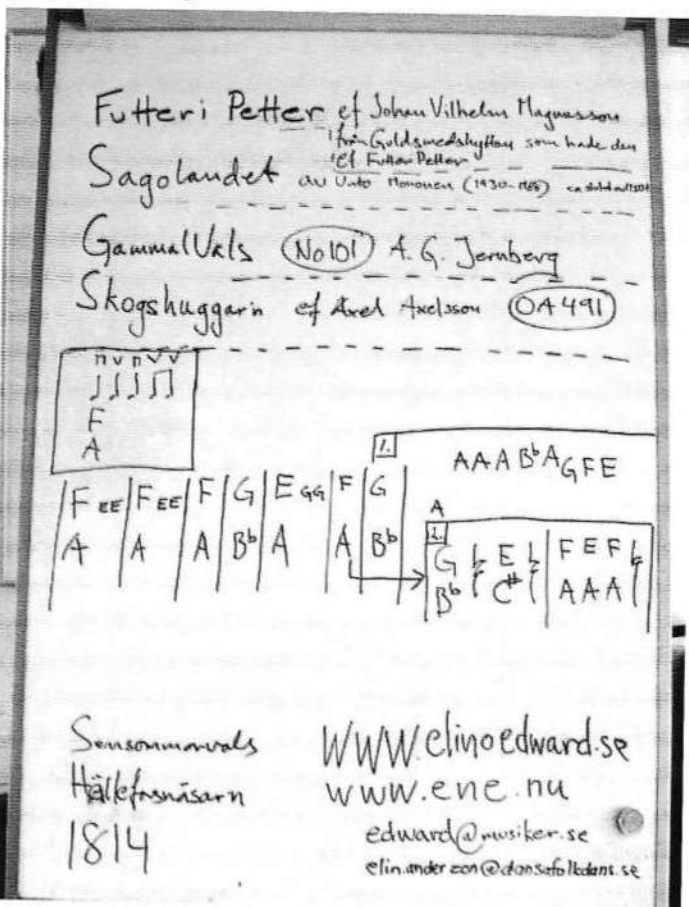 Futteri Petter ef Johan Vilhelm Magnusson
från Guldsmedshyttan som hade den
ef Futter Petter
Sagolandet av Unto Mononen (1930-1968)
Gammal Vals No 101 A. G. Jernberg
Skogshuggarn ef Axel Axelsson OA 491
F
A
1. AAA BbA GFE
F EE F EE F G E GG F G
A A A Bb A A Bb
A
2.
G E F E F
Bb C# A A A
Sensommarvals
Hällefosnäsarn
1814
WWW.elinoedward.se
www.ene.nu
edward@musiker.se
elin.anderzon@dansafolkdans.se